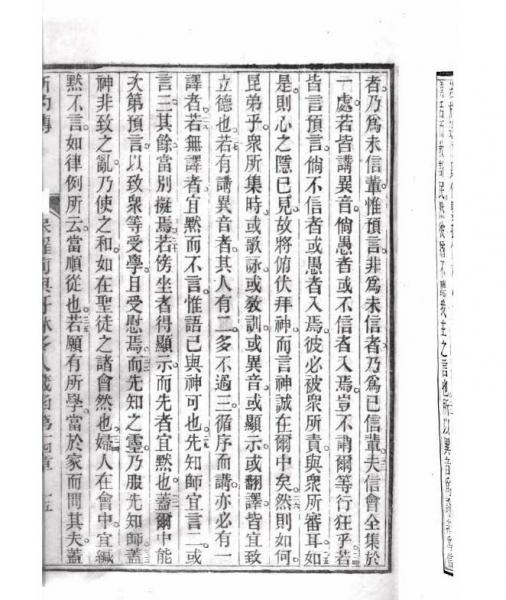 民然彼猶不聽我主之言也所以異音為
者乃為未信輩惟預言非為未信者乃為已信輩夫信會全集於
一處若皆講異音倘愚者或不信者入焉豈不謂爾等行狂乎若
皆言預言倘不信者或愚者入焉彼必被眾所責與眾所審耳如
是則心之隱已見故將俯伏拜神而言神誠在爾中矣然則如何
昆弟乎眾所集時或歌詠或教訓或異音或顯示或翻譯皆宜致
立德也若有講異音者其人有二多不過三循序而講亦必有一
譯者若無譯者宜默而不言惟語己與神可也先知師宜言二或
言三其餘當別擬焉若傍坐者得顯示而先者宜默也蓋爾中能
次第預言以致眾等受學且受慰焉而先知之靈乃服先知師蓋
神非致之亂乃使之和如在聖徒之諸會然也婦人在會中宜緘
默不言如律例所云當順從也若願有所學當於家而問其夫蓋